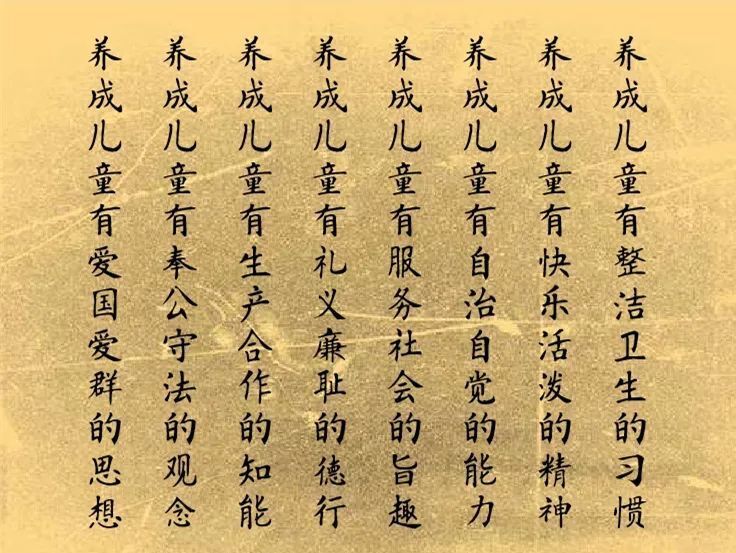 养成儿童有整洁卫生的习惯
养成儿童有快乐活泼的精神
养成儿童有自治自觉的能力
养成儿童有服务社会的旨趣
养成儿童有礼义廉耻的德行
养成儿童有生产合作的知能
养成儿童有奉公守法的观念
养成儿童有爱国爱群的思想